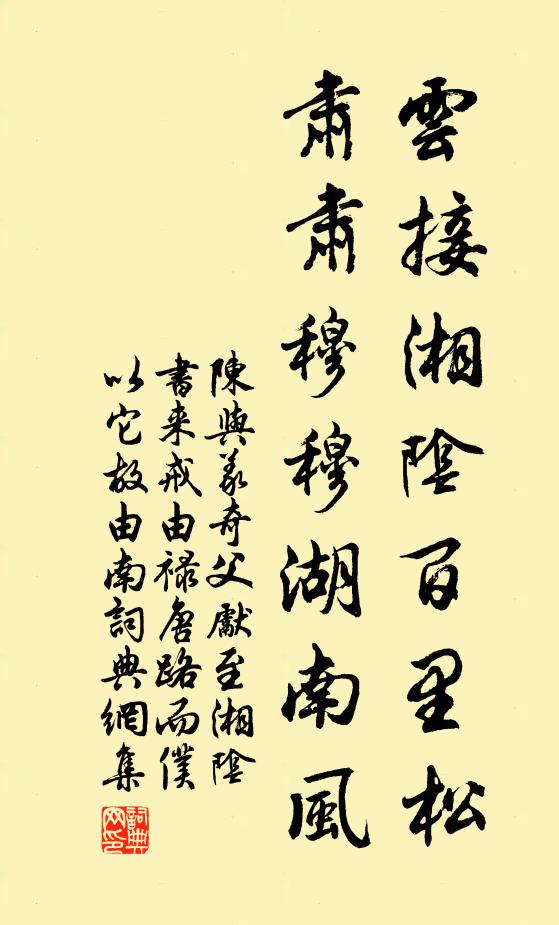 雲接湘陰百里松
肅肅穆穆湖南風
陳與義奇父獻至湘陰
書來戒由祿唐路而僕
以它故由南詞典網集
詞典網印